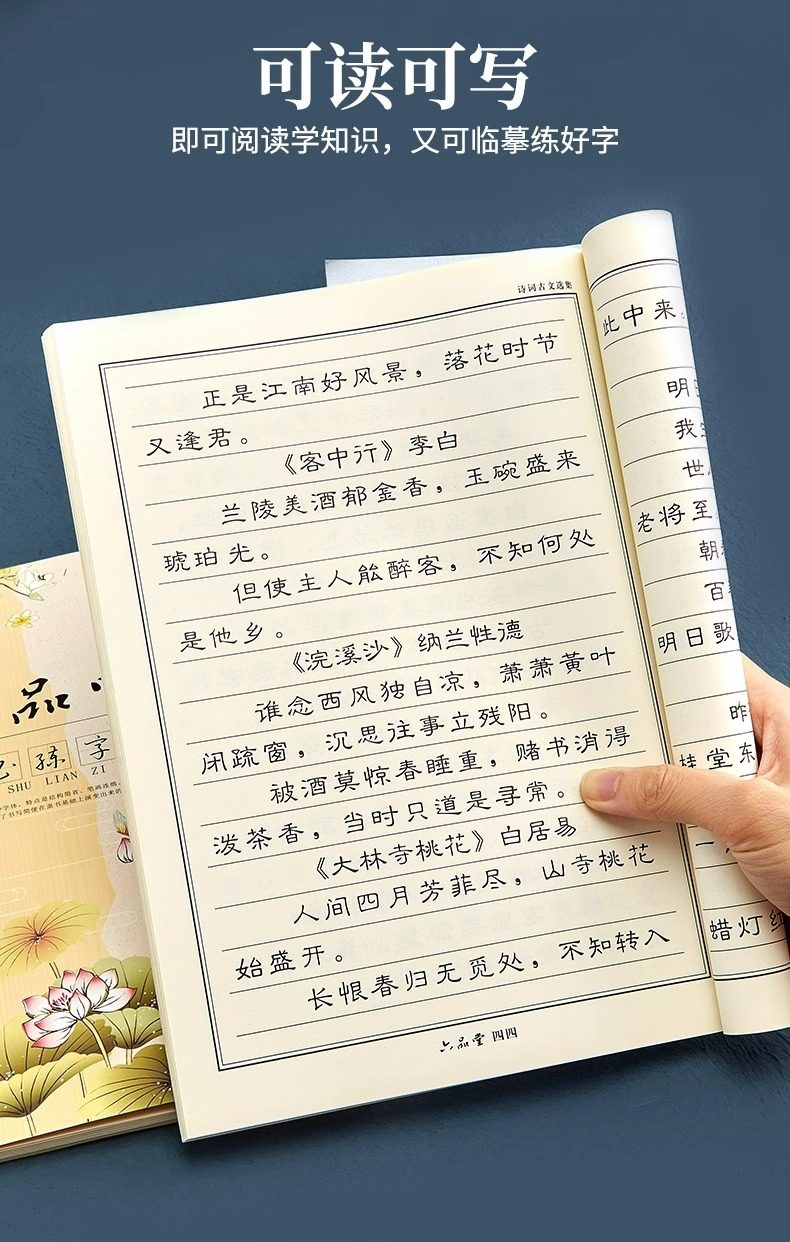 可读可写
即可阅读学知识，又可临摹练好字
诗词古文选集
正是江南好风景，落花时节
又逢君。
《客中行》李白
兰陵美酒郁金香，玉碗盛来
琥珀光。
但使主人能醉客，不知何处
是他乡。
《浣溪沙》纳兰性德
谁念西风独自凉，萧萧黄叶
闭疏窗，沉思往事立残阳。
被酒莫惊春睡重，赌书消得
泼茶香，当时只道是寻常。
《大林寺桃花》白居易
人间四月芳菲尽，山寺桃花
始盛开。
长恨春归无觅处，不知转入
六品堂 四四
此中来。
明
我
世
老将至
朝
百
明日歌
昨
桂堂东
一
蜡灯红
品
练字
SHU LIAN ZI